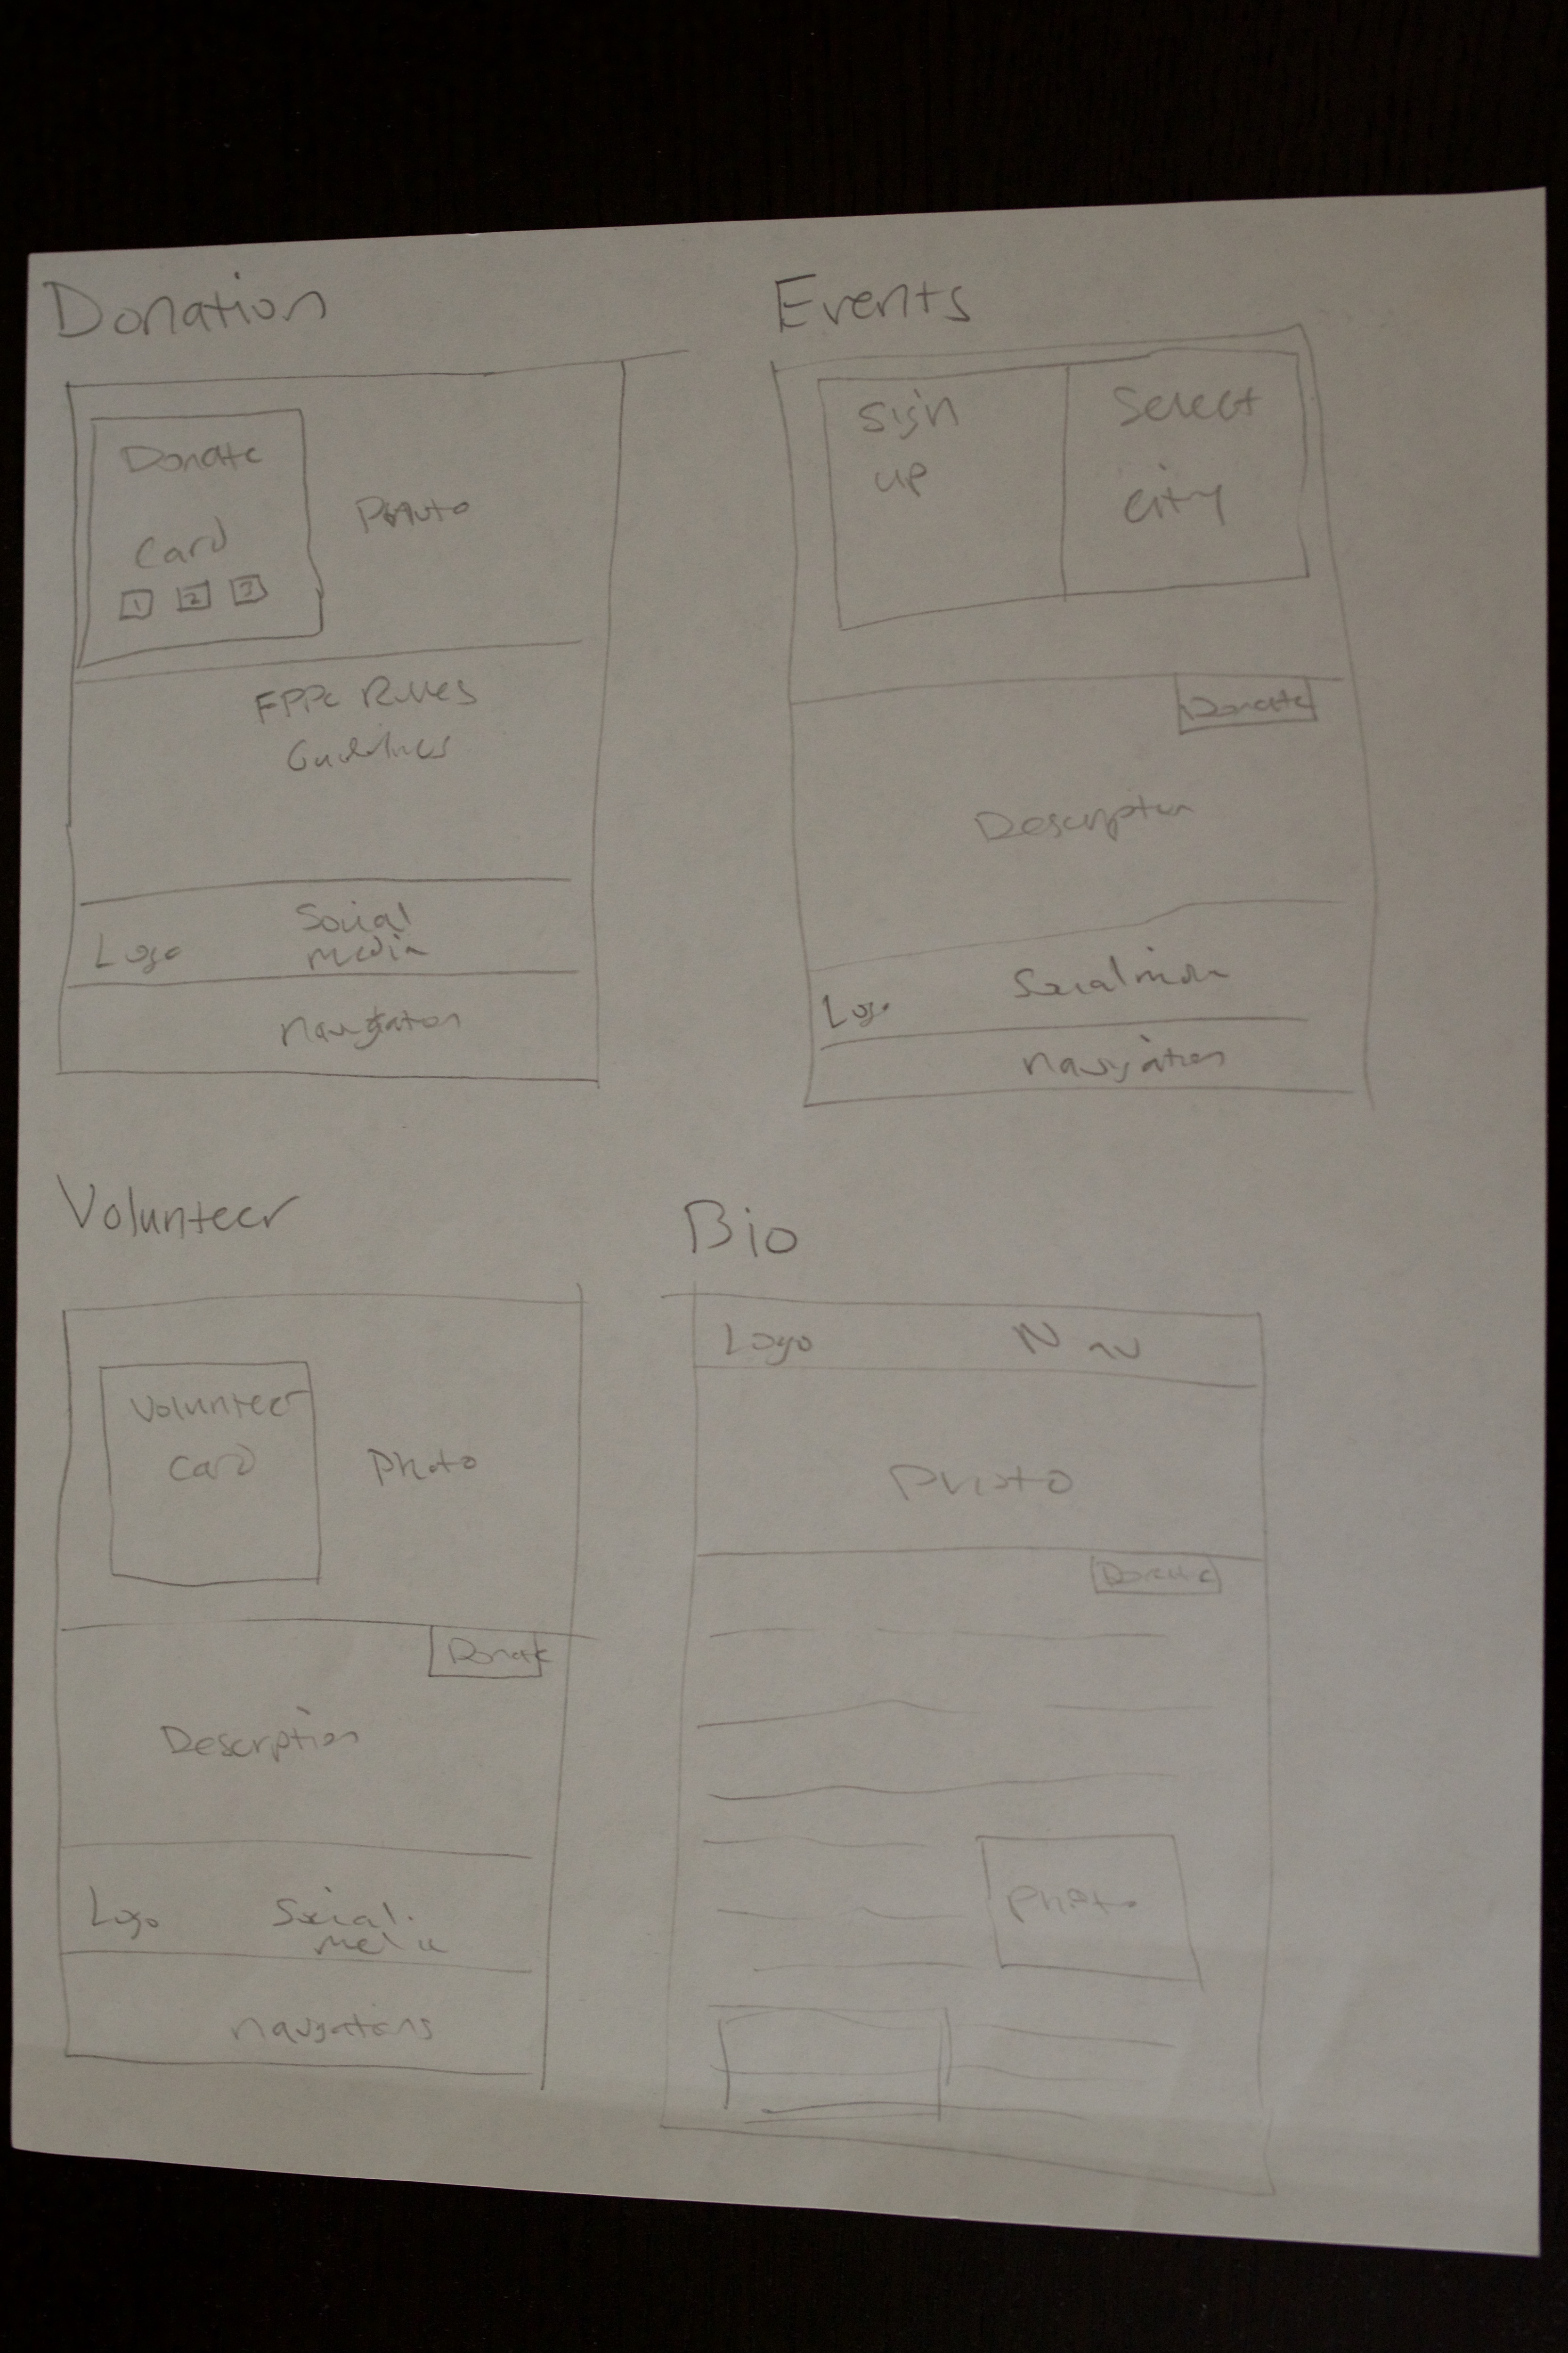 Donation
Donate
Card
1 2 3
Photo
FPPC Rules
Guidelines
Logo
Social
media
Navigation
Events
Sign
up
Select
city
Donate
Description
Logo
Social media
navigation
Volunteer
Volunteer
Card
Photo
Donate
Description
Logo
Social
media
navigations
Bio
Logo
Photo
Donate
Photo